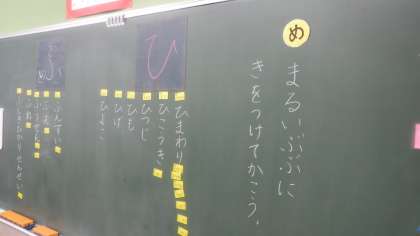 め
まるいぶぶに
きをつけてかこう。
ひ
ひまわり
ひこうき
ひつじ
ひも
ひげ
ひよこ
ふ
ふんすい
ふえ
ふうせん
ふね